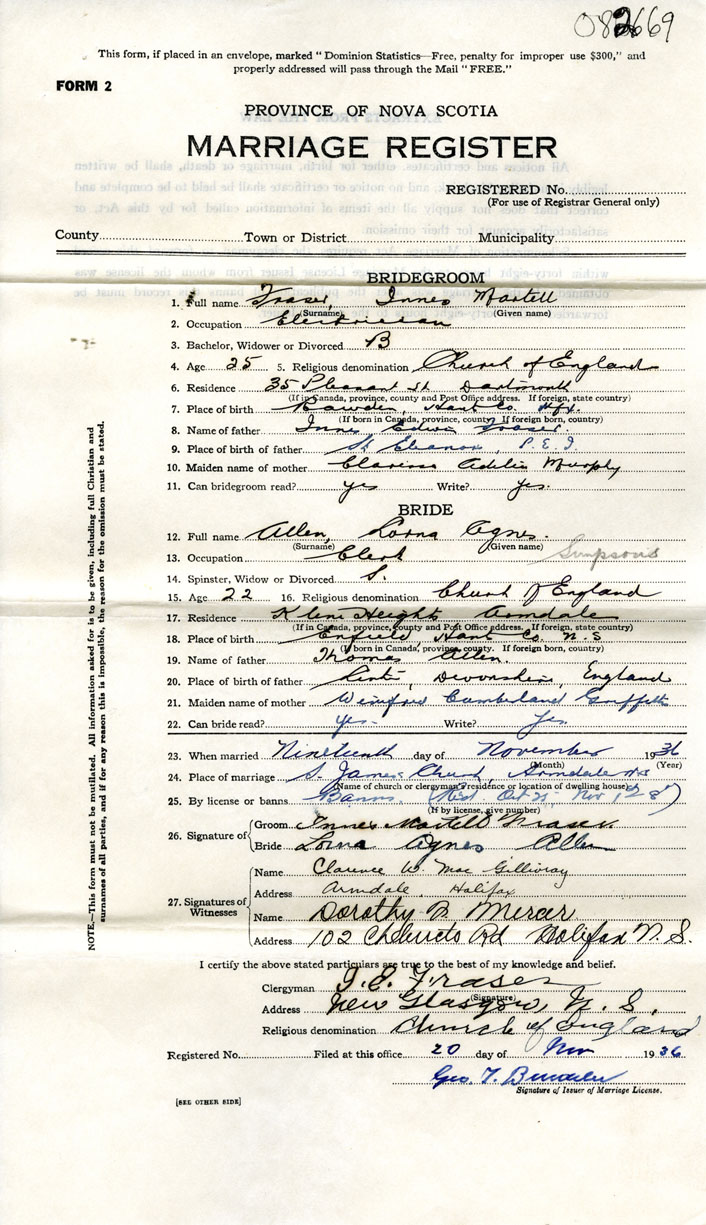 082669
This form, if placed in an envelope, marked "Dominion Statistics—Free, penalty for improper use $300," and
properly addressed will pass through the Mail "FREE."
FORM 2
PROVINCE OF NOVA SCOTIA
MARRIAGE REGISTER
REGISTERED No.
(For use of Registrar General only)
County Town or District Municipality
BRIDEGROOM
1. Full name Fraser, Innes Martell
(Surname) (Given name)
2. Occupation Electrician
3. Bachelor, Widower or Divorced B
4. Age 25 5. Religious denomination Church of England
6. Residence 35 Pleasant St Dartmouth
(If in Canada, province, county and Post Office address. If foreign, state country)
7. Place of birth Rawdon, Hants Co.
(If born in Canada, province, county. If foreign born, country)
8. Name of father Innes Edwin Fraser.
9. Place of birth of father St Eleanor, P.E.I.
10. Maiden name of mother Clarissa Adelia Murphy
11. Can bridegroom read? yes Write? yes.
BRIDE
12. Full name Allen, Lorna Agnes.
(Surname) (Given name)
13. Occupation Clerk Simpsons
14. Spinster, Widow or Divorced S.
15. Age 22 16. Religious denomination Church of England
17. Residence Heights Armdale
(If in Canada, province, county and Post Office address. If foreign, state country)
18. Place of birth Enfield, Hants Co. N.S
(If born in Canada, province, county. If foreign born, country)
19. Name of father Thomas Allen.
20. Place of birth of father Devonshire, England
21. Maiden name of mother Winifred Cumberland Griffith
22. Can bride read? yes Write? Yes.
23. When married Nineteenth day of November 1936
(Month) (Year)
24. Place of marriage S. James Church, Armdale N.S
(Name of church or clergyman's residence or location of dwelling house)
25. By license or banns Banns. Oct 25 Nov 1 & 8
(If by license, give number)
26. Signature of
Groom Innes Martell Fraser.
Bride Lorna Agnes Allen
27. Signatures of Witnesses
Name Clarence W. MacGillivray
Address Armdale, Halifax
Name Dorothy B. Mercer
Address 102 Chebucto Rd Halifax N.S.
I certify the above stated particulars are true to the best of my knowledge and belief.
Clergyman I.E. Fraser
(Signature)
Address New Glasgow, N.S.
Religious denomination Church of England
Registered No. Filed at this office 20 day of Nov 1936
Geo. T.
Signature of Issuer of Marriage License.
[SEE OTHER SIDE]
NOTE.—This form must not be mutilated. All information asked for is to be given, including full Christian and
surnames of all parties, and if for any reason this is impossible, the reason for the omission must be stated.